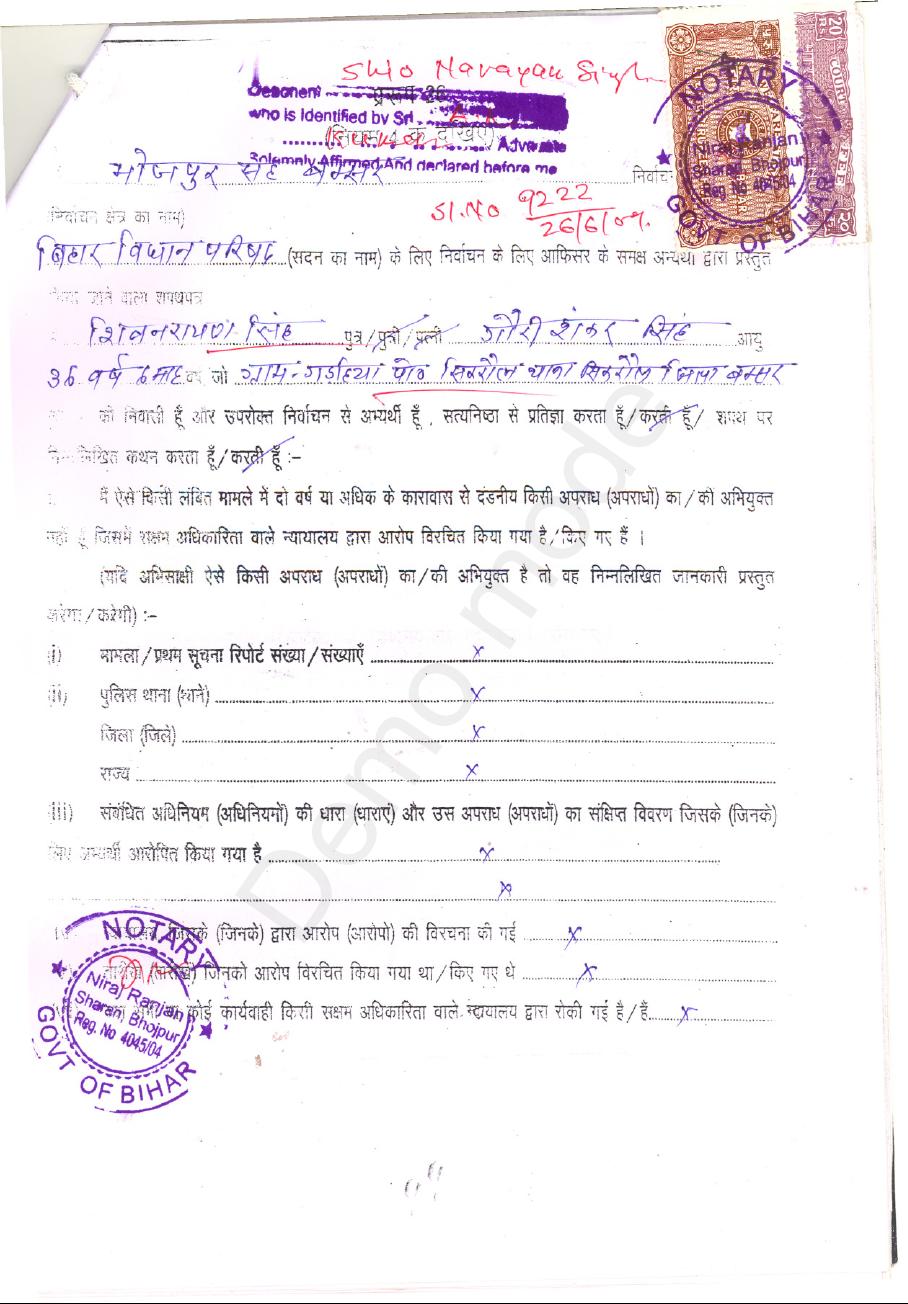 Shio Narayan Singh
Deponent प्ररूप 26
who is Identified by Sri
(नियम 4 क देखिए)
Kumar Advocate
Solemnly Affirmed And declared before me
NOTARY
Niraj Ranjan
Sharan Bhojpur
Reg. No 4045/04
GOVT OF BIHAR
20 Rs. COURT FEE
भोजपुर सह बक्सर निर्वाचन
Sl.No 9222
26/6/09.
निर्वाचन क्षेत्र का नाम)
बिहार विधान परिषद (सदन का नाम) के लिए निर्वाचन के लिए आफिसर के समक्ष अभ्यर्थी द्वारा प्रस्तुत
किया जाने वाला शपथपत्र
शिवनरायण सिंह पुत्र/पुत्री/पत्नी गौरी शंकर सिंह आयु
36 वर्ष 6 माह वर्ष जो ग्राम-गडहिया पो० सिकरौल थाना सिकरौल जिला बक्सर
का निवासी हूँ और उपरोक्त निर्वाचन से अभ्यर्थी हूँ, सत्यनिष्ठा से प्रतिज्ञा करता हूँ/करती हूँ/ शपथ पर
निम्नलिखित कथन करता हूँ/करती हूँ :-
मैं ऐसे किसी लंबित मामले में दो वर्ष या अधिक के कारावास से दंडनीय किसी अपराध (अपराधों) का/की अभियुक्त
नहीं हूँ जिसमें सक्षम अधिकारिता वाले न्यायालय द्वारा आरोप विरचित किया गया है/किए गए हैं ।
(यदि अभिसाक्षी ऐसे किसी अपराध (अपराधों) का/की अभियुक्त है तो वह निम्नलिखित जानकारी प्रस्तुत
करेगा/करेगी) :-
i) मामला/प्रथम सूचना रिपोर्ट संख्या/संख्याएँ x
ii) पुलिस थाना (थाने) x
जिला (जिले) x
राज्य x
iii) संबंधित अधिनियम (अधिनियमों) की धारा (धाराएं) और उस अपराध (अपराधों) का संक्षिप्त विवरण जिसके (जिनके)
लिए अभ्यर्थी आरोपित किया गया है x
x
जिसके (जिनके) द्वारा आरोप (आरोपो) की विरचना की गई x
तारीख (तारीखें) जिनको आरोप विरचित किया गया था/किए गए थे x
कोई कार्यवाही किसी सक्षम अधिकारिता वाले न्यायालय द्वारा रोकी गई है/हैं x
NOTARY
Niraj Ranjan
Sharan Bhojpur
Reg. No 4045/04
GOVT OF BIHAR
Demo mode